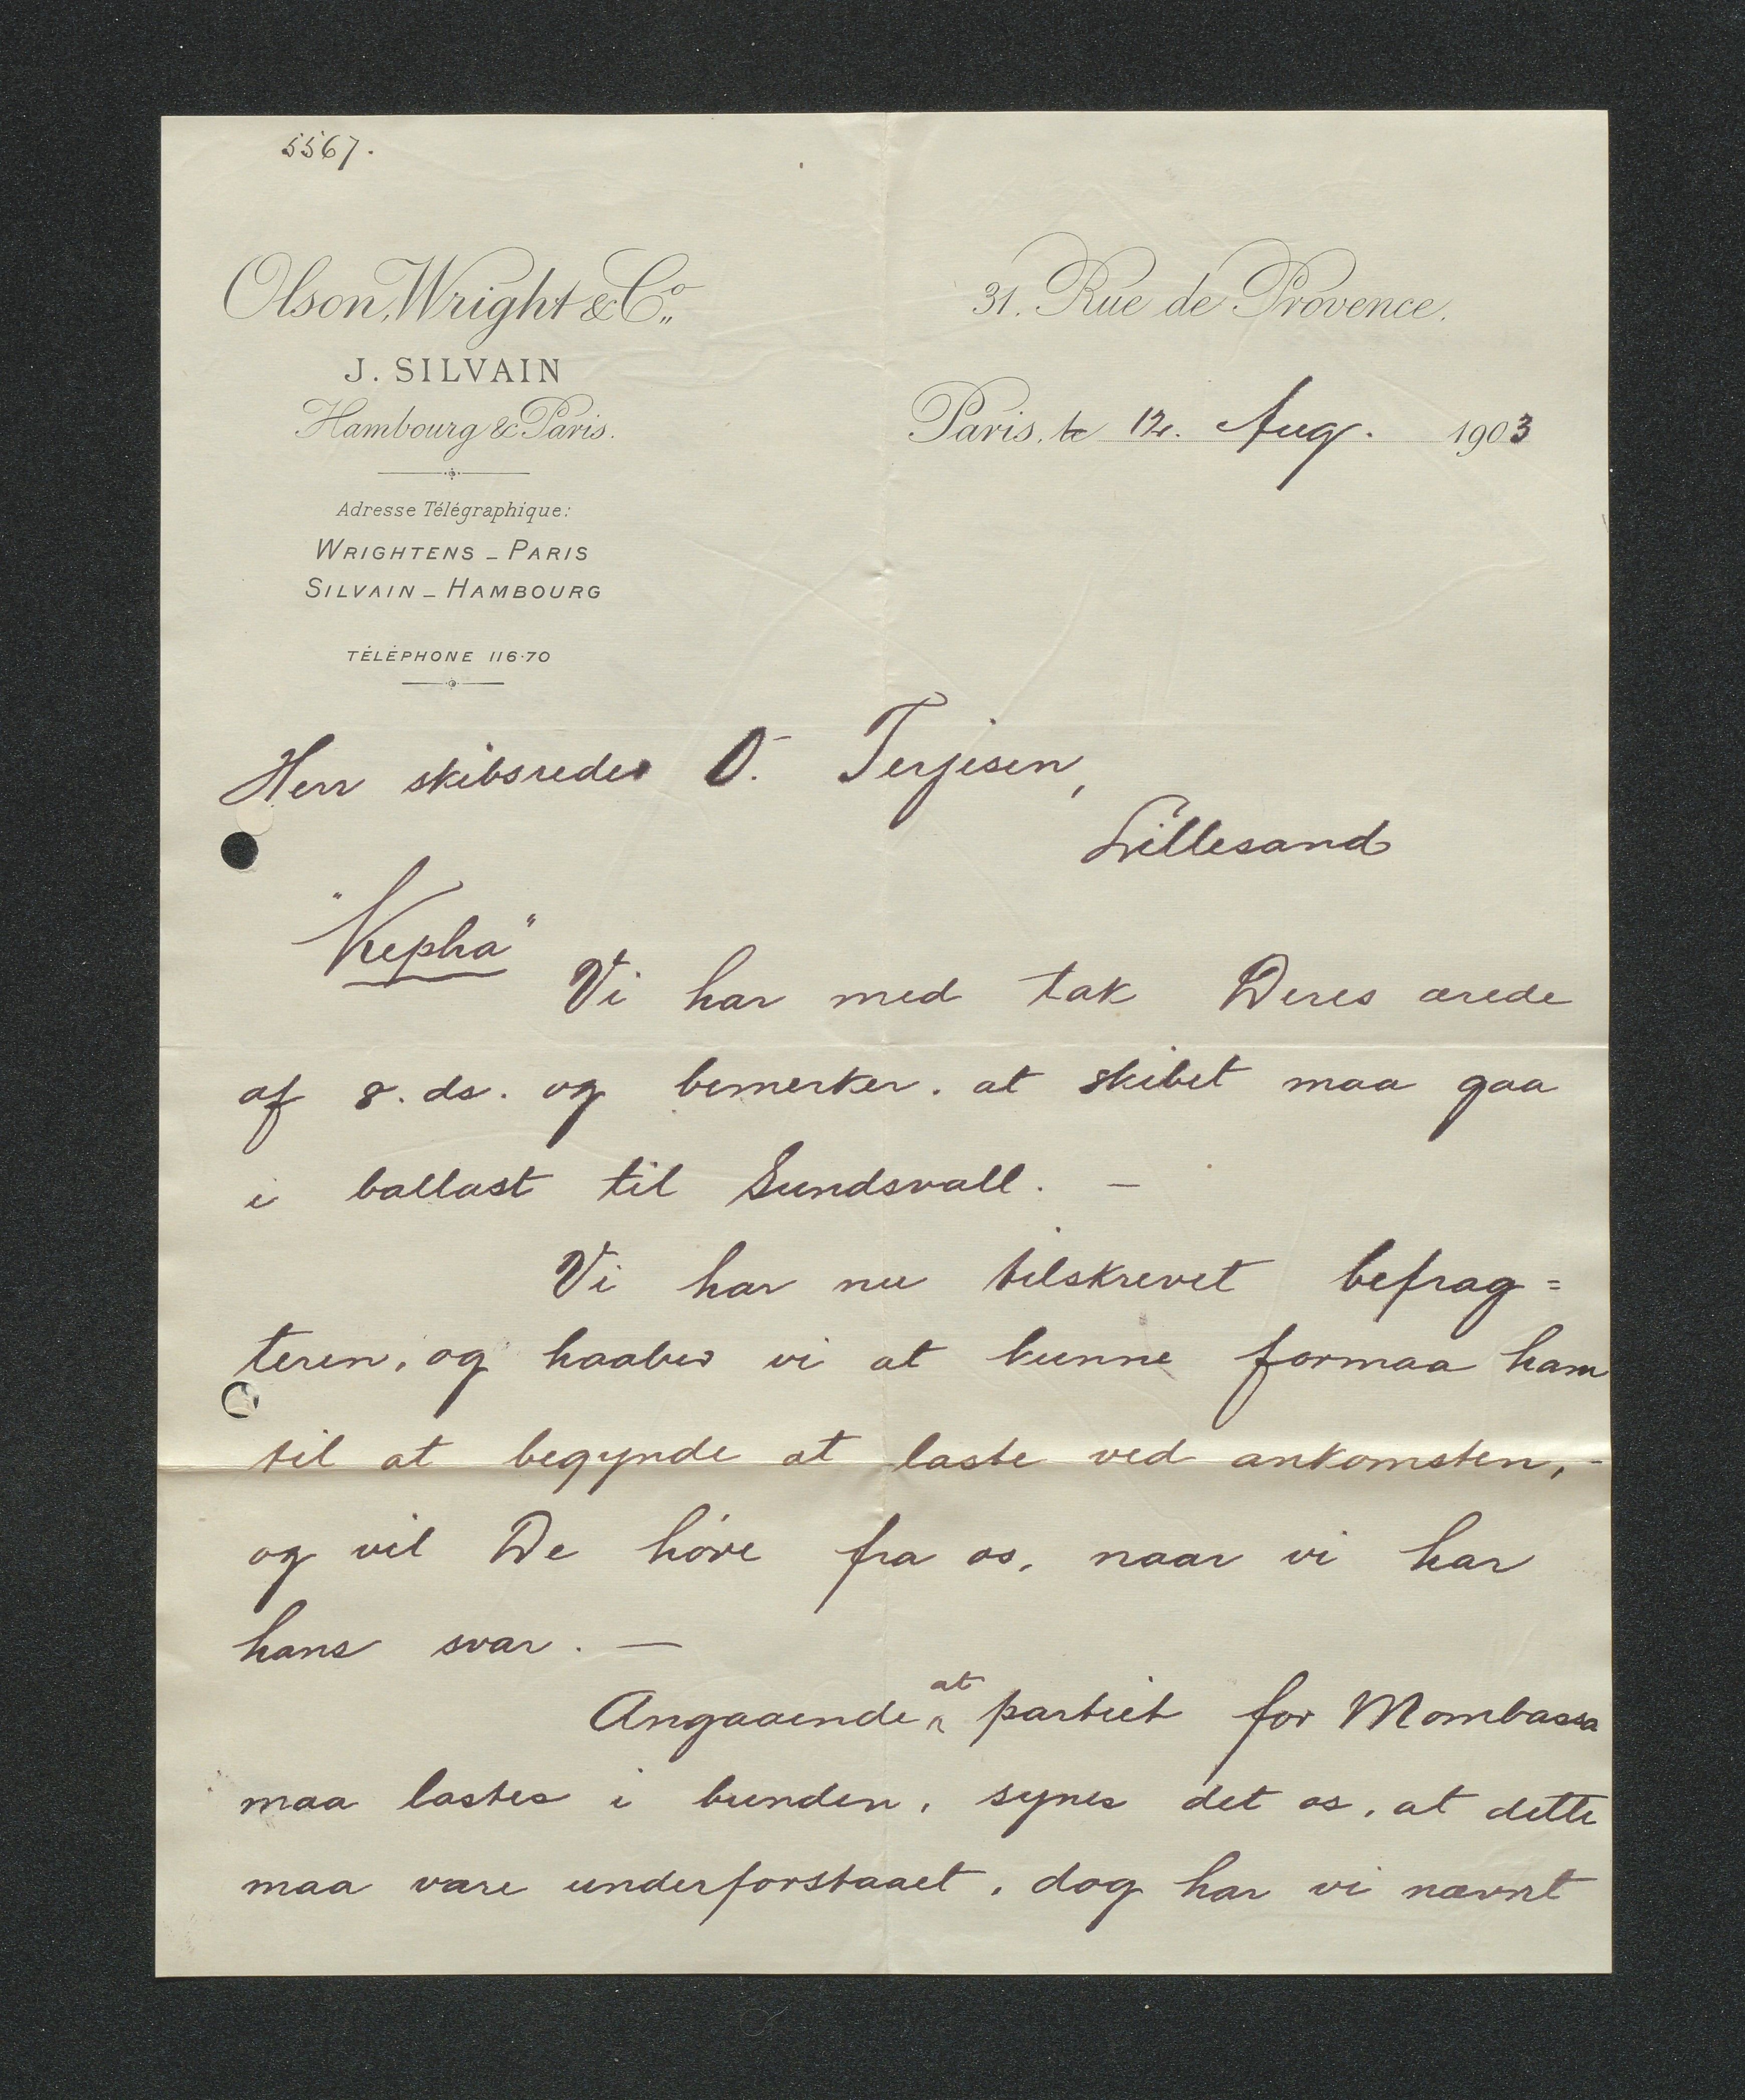 5567.
Olson, Wright & Co.,
31. Rue de Provence.
J. SILVAIN
Hambourg & Paris.
Paris, le 12. Aug. 1903
Adresse Télégraphique:
WRIGHTENS _ PARIS
SILVAIN _ HAMBOURG
TÉLÉPHONE 116·70
Herr skibsreder O. Terjesen,
Lillesand
"Kepha"
Vi har med tak Deres ærede
af 8. ds. og bemerker. at skibet maa gaa
i ballast til Sundsvall. —
Vi har nu tilskrevet befrag=
teren, og haaber vi at kunne formaa ham
til at begynde at laste ved ankomsten, -
og vil De høre fra os, naar vi har
hans svar. —
Angaaende at partiet for Mombassa
maa lastes i bunden, synes det os, at dette
maa være underforstaaet, dog har vi nævnt